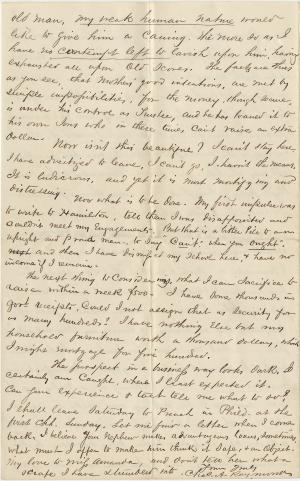 old man, my weak human nature would
like to give him a caning. The more so as I
have no contempt left to lavish upon him, having
exhausted all upon Old Jones. The facts are thus
as you see, that Mothers good intentions, are met by
simple impossibilities, for the money, though secure,
is under his control as Trustee, and he has loaned it to
his own Sons who in these times can't raise an extra
Dollar.
Now isn't this beautiful? I can't stay here
I have advertized to leave, I can't go, I haven't the means,
It is ludicrous, and yet it is most mortifying and
distressing.
Now what is to be done. My first impulse was
to write to Hamilton, tell them I was disappointed and
couldn't meet my Engagements. But that is a bitter Pill to an
upright and proud man, to say Can't when you ought.
and then I have dismissed my school here, & have no
income if I remain.
The next thing to Consider was, what I can sacrifice to
raise within a week $500 - I have some thousands in
Govt receipts, Could I not assign that as security for
so many hundreds? I have nothing else but my
household furniture worth a thousand dollars, which
I might mortgage for five hundred.
The prospect in a business way looks dark. I
certainly am Caught, where I least expected it.
Can your experience & tact tell me what to do?
I shall leave Saturday to Preach in Phild. at the
first Chh. Sunday. Let me find a letter when I come
back. I believe your Nephew makes advantageous loans, sometimes,
what must I offer to make him think it safe, & an object.
My love to Miss Amanda, and don't tell her what a
scrape I have blundered into
Yours Truly